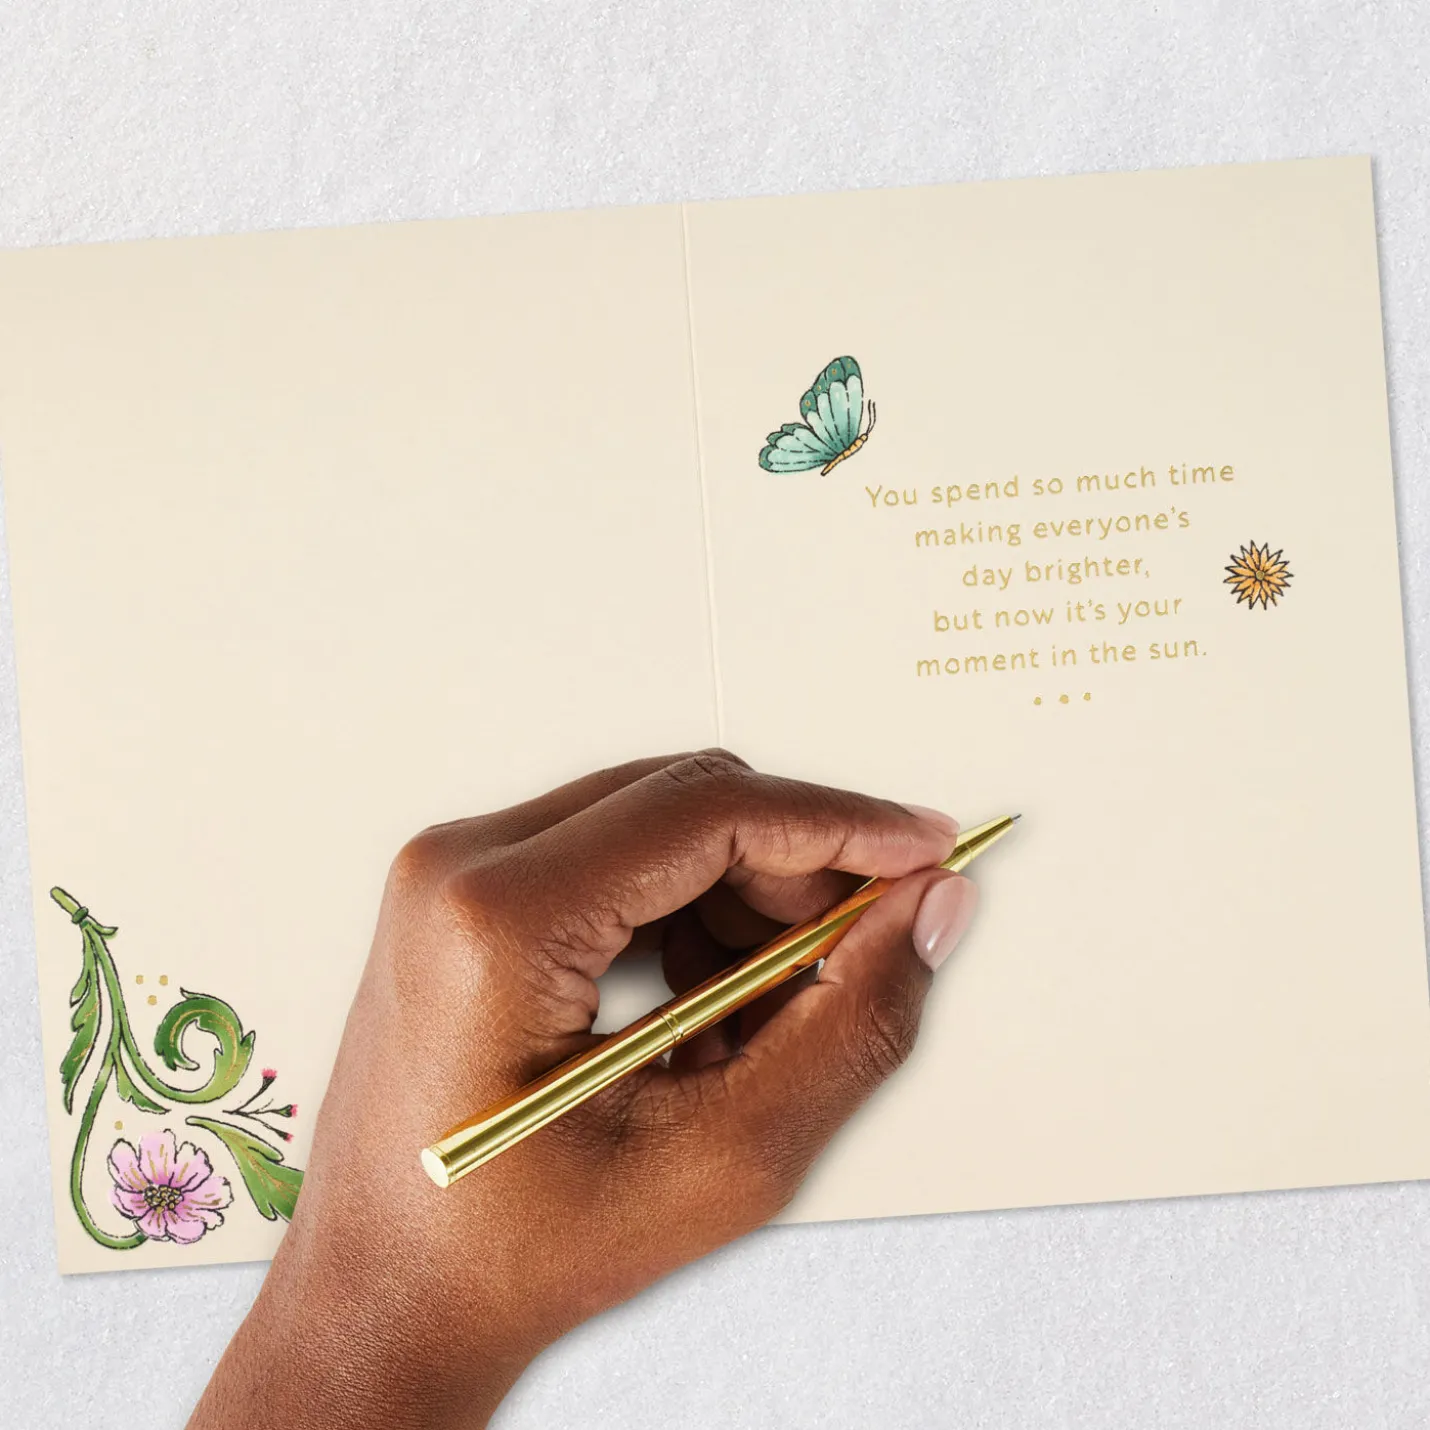 You spend so much time
making everyone's
day brighter,
but now it's your
moment in the sun.